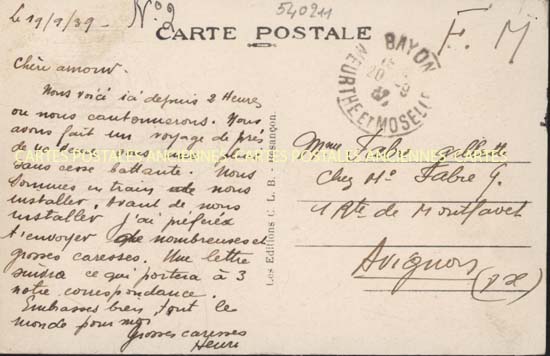 Le 19/9/39 -
N° 2
540211
F. M
CARTE POSTALE
BAYON
MEURTHE ET MOSELLE
Chère amour.
Nous voici ici depuis 2 Heures
ou nous cantonnerons. Nous
avons fait un voyage de près
de
sans cesse battante. Nous
sommes en train de nous
installer. Avant de nous
installer j'ai préférée
t'envoyer que nombreuses et
grosses caresses. Une lettre
suivra ce qui portera à 3
notre correspondance.
Embrasses bien tout le
monde pour moi
Grosses caresses
Henri
CARTES POSTALES ANCIENNES CARTES POSTALES ANCIENNES CARTES
Les Editions C. L. B. - Besançon.
Mme Fabre
Chez Mr Fabre G.
1 Rte de Montfavet
Avignon